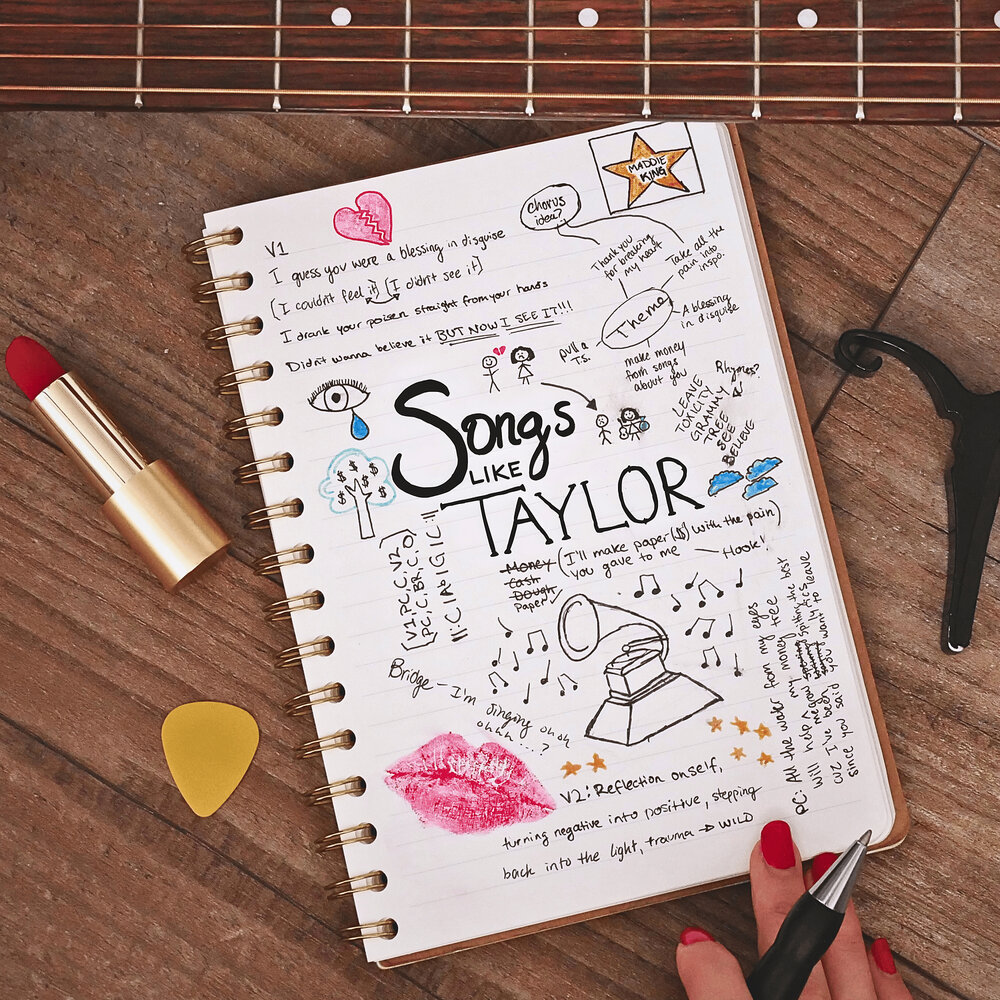 MADDIE
KING
Chorus
idea?
V1
I guess you were a blessing in disguise
(I couldn't feel it) (I didn't see it)
I drank your poison straight from your hands
Didn't wanna believe it BUT NOW I SEE IT!!!
Thank you
for breaking
my heart
Take all the
pain into
inspo.
Theme
A blessing
in disguise
pull a
T.S.
make money
from songs
about you
Rhymes?
LEAVE
TOXICITY
GRAMMY
TREE
SEE
BELIEVE
SONGS
LIKE
TAYLOR
$ $ $ $ $ $
[V1, PC, C, V2,
PC, C, BR, C, O]
||: C | Ab | G | C :||
Money
Cash
Dough
Paper ✓
(I'll make paper ($) with the pain)
you gave to me — Hook!
Bridge - I'm singing ohoh
ohhh...?
V2: Reflection onself,
turning negative into positive, stepping
back into the light, trauma → WILD
PC: All the water from my eyes
will help grow my money tree
cuz I've been spitting the best
since you said you want to leave